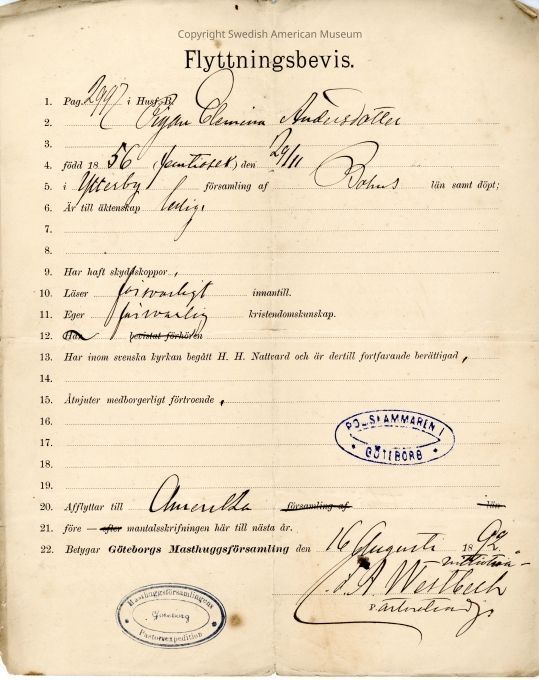 Copyright Swedish American Museum
Flyttningsbevis.
1. Pag. 2997 i Husf. B.
2. Pigan Clemina Andersdotter
3.
4. född 18 56 (femtiosex) den 29/11
5. i Ytterby församling af Bohus län samt döpt;
6. Är till äktenskap ledig,
7.
8.
9. Har haft skyddskoppor,
10. Läser försvarligt innantill.
11. Eger försvarlig kristendomskunskap.
12. Har bevistat förhören
13. Har inom svenska kyrkan begått H. H. Nattvard och är dertill fortfarande berättigad,
14.
15. Åtnjuter medborgerligt förtroende,
16.
POLISKAMMAREN I
GÖTEBORG
17.
18.
19.
20. Afflyttar till Amerika församling af län
21. före — efter mantalsskrifningen här till nästa år.
22. Betygar Göteborgs Masthuggsförsamling den 16 Augusti 1892.
Masthuggsförsamlingens
Göteborg
Pastorsexpedition
A. Westbeck